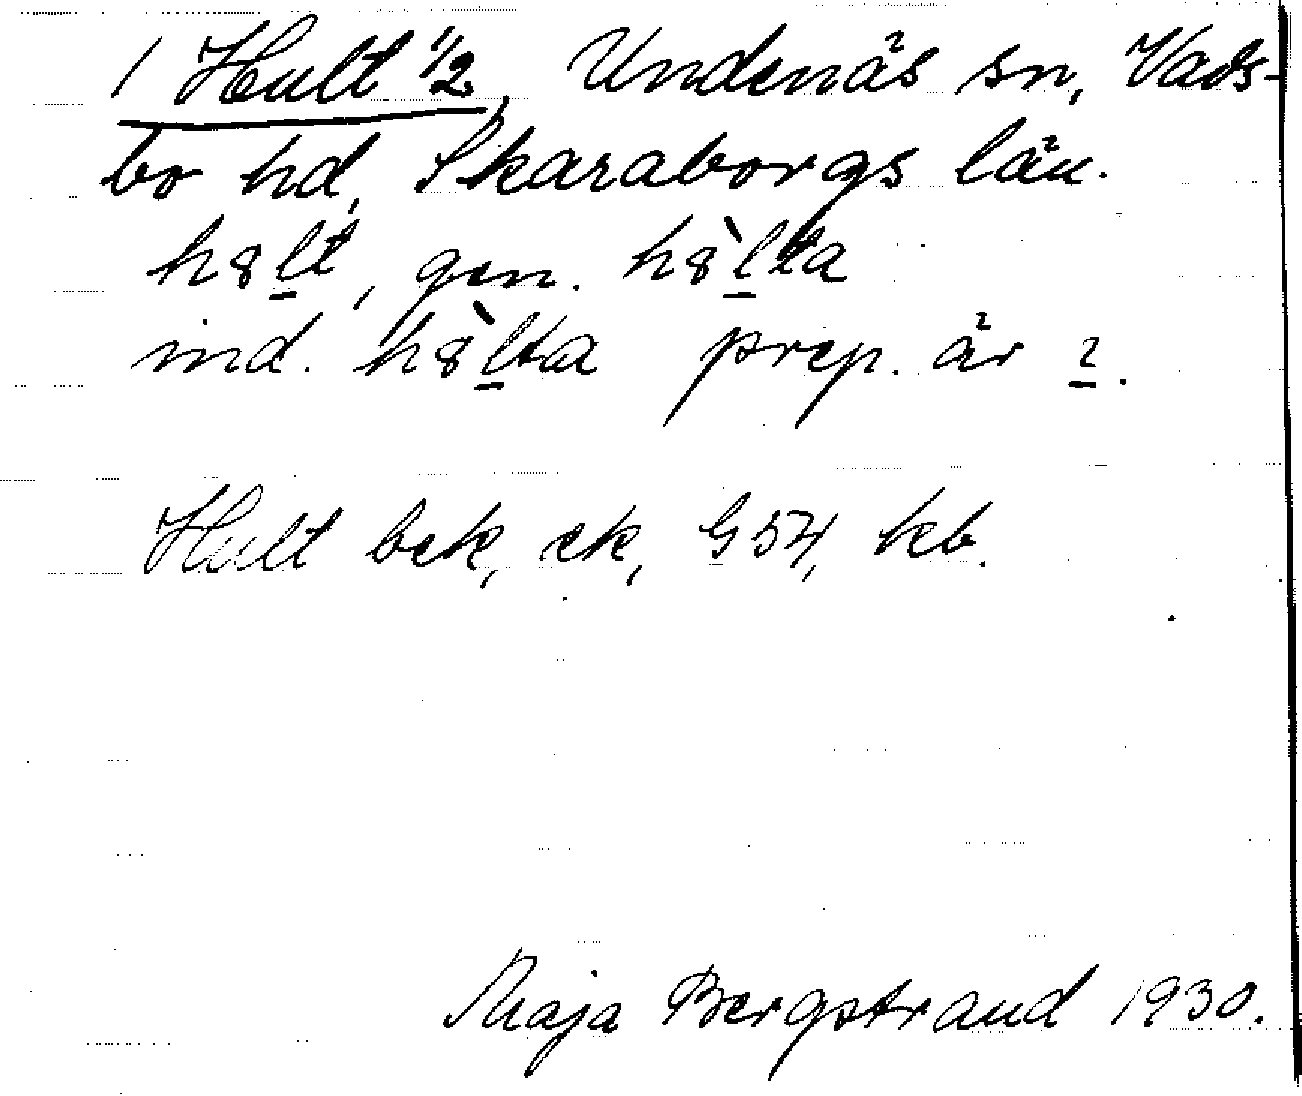 1 Hult 1/2, Undenäs sn, Vads-
bo hd, Skaraborgs län.
h8lt, gen. h8̀lta
ind. h8̀lta prep. är ɩ.
Hult bek, ek, G54, kb.
Maja Bergstrand 1930.